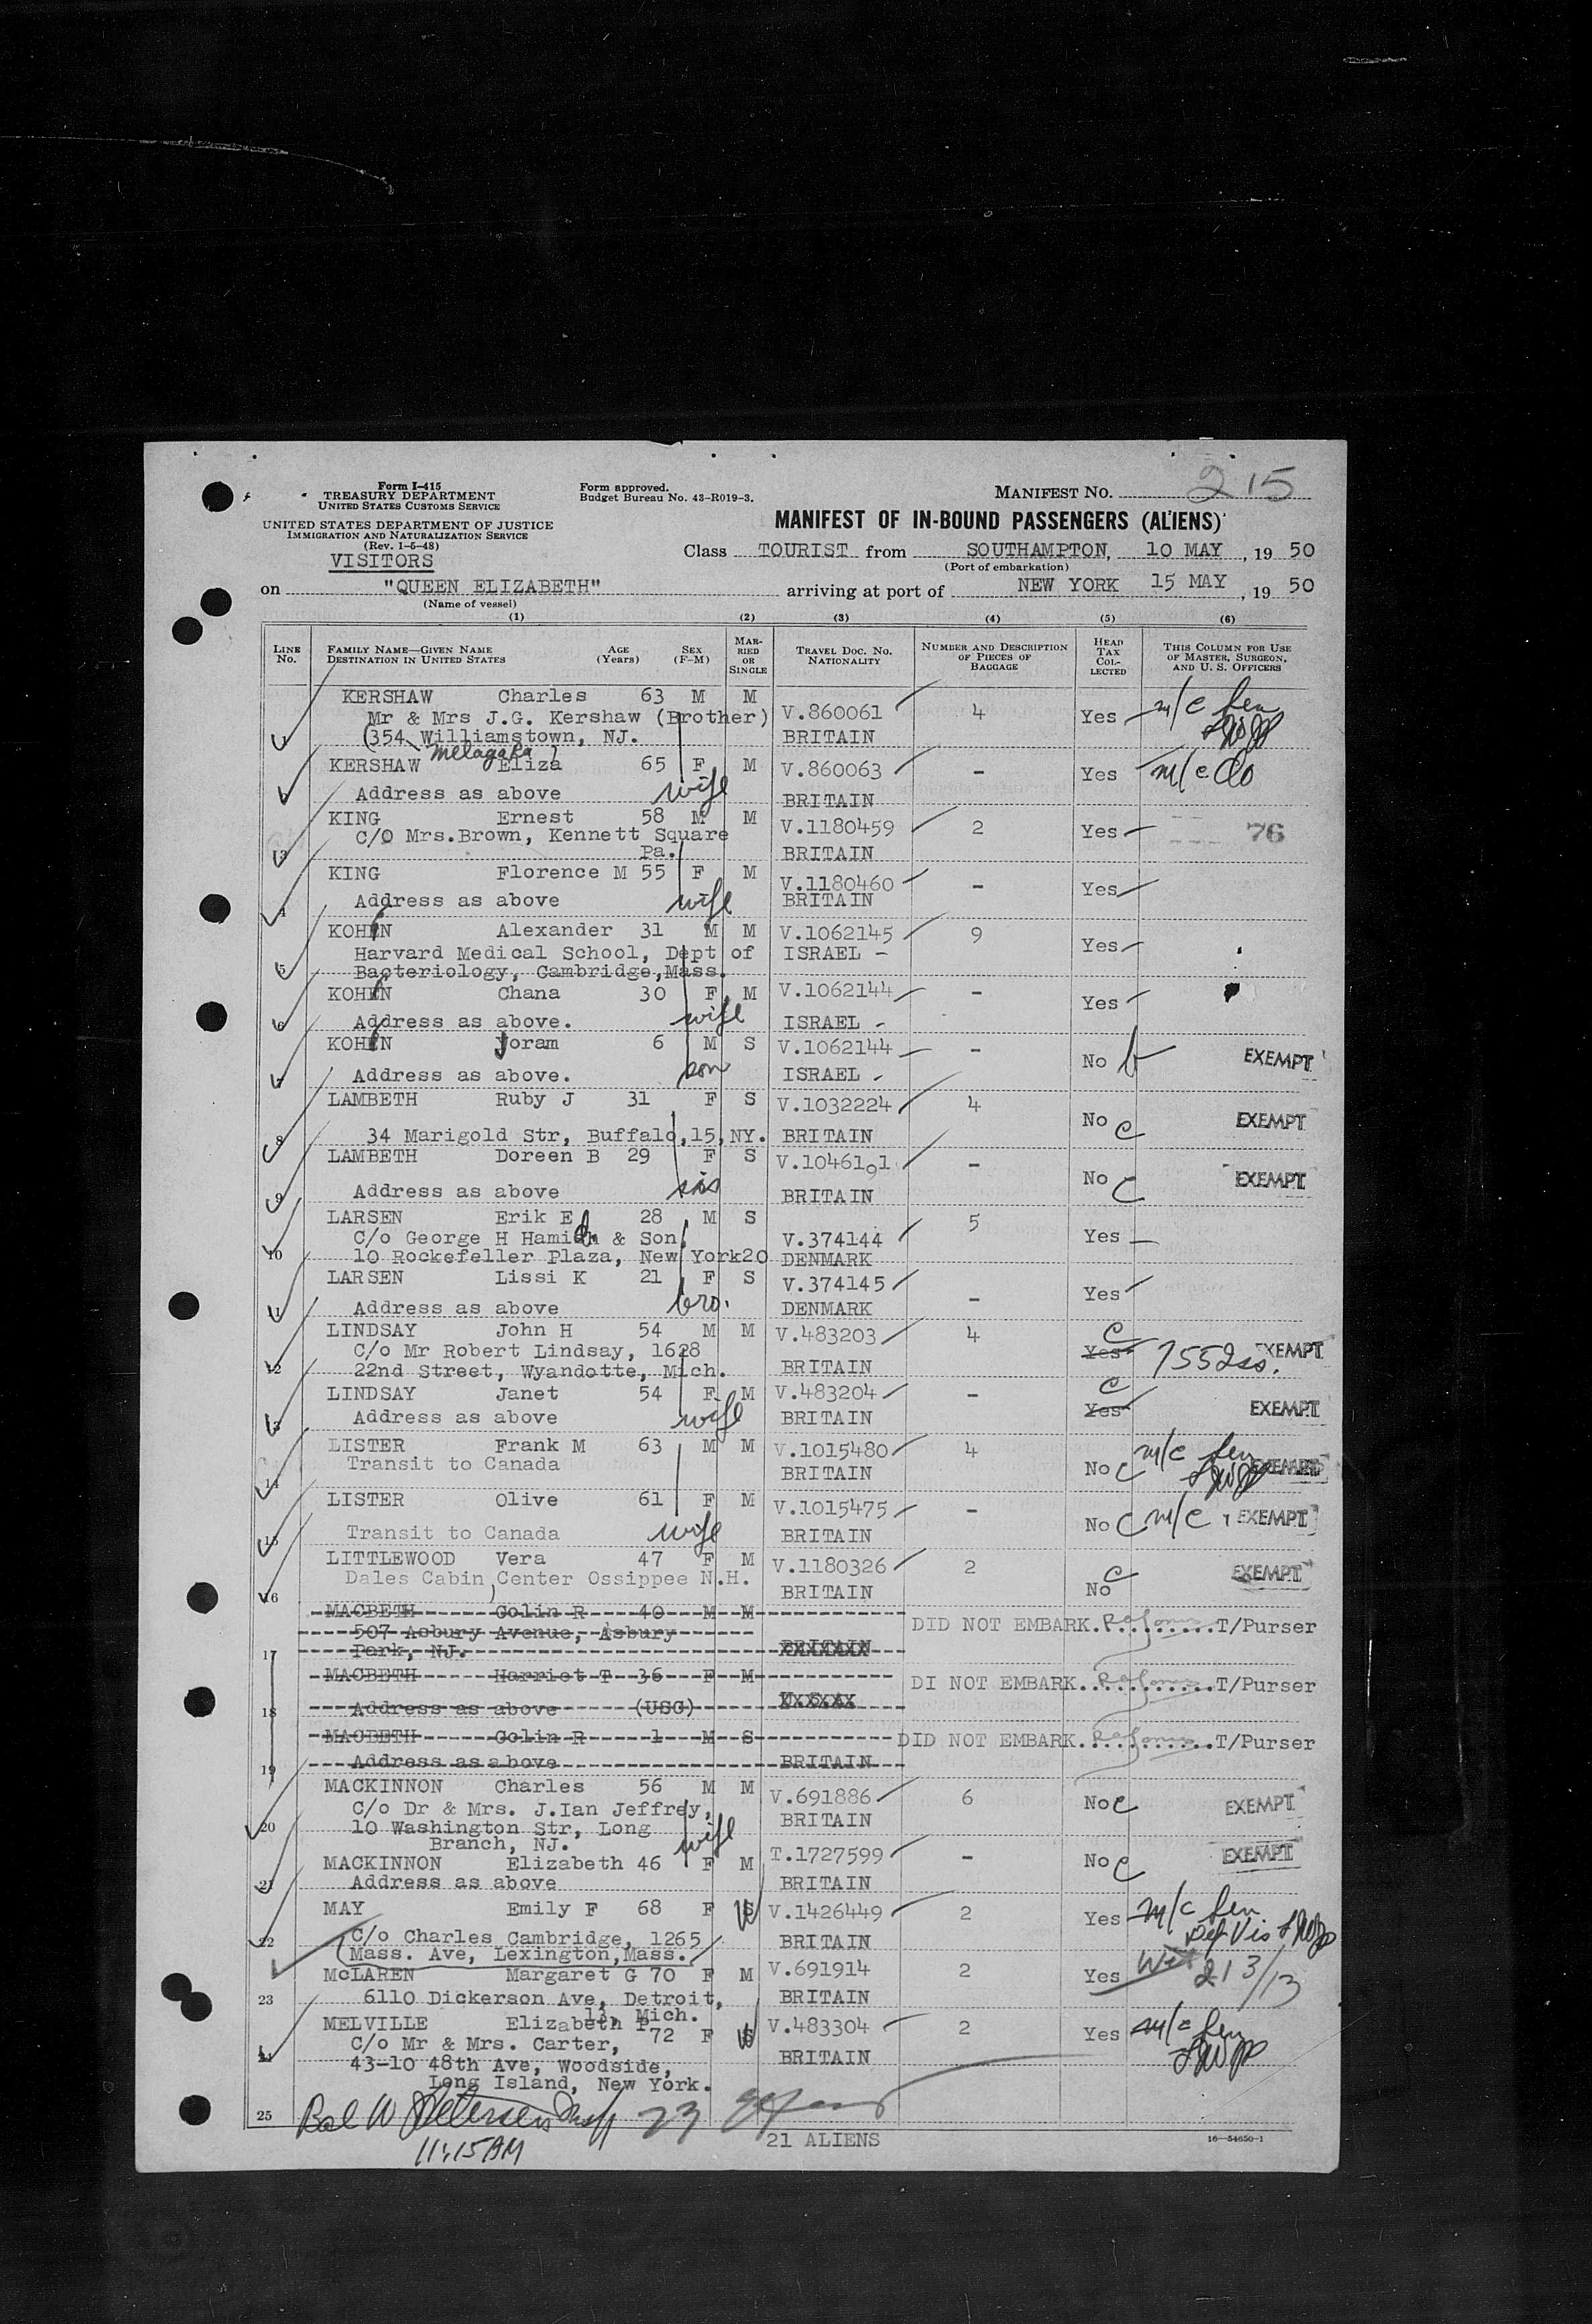 Form I-415
TREASURY DEPARTMENT
UNITED STATES CUSTOMS SERVICE
Form approved.
Budget Bureau No. 43-R019-3.
MANIFEST NO. 215
UNITED STATES DEPARTMENT OF JUSTICE
IMMIGRATION AND NATURALIZATION SERVICE
(Rev. 1-6-48)
VISITORS
MANIFEST OF IN-BOUND PASSENGERS (ALIENS)
Class TOURIST from SOUTHAMPTON, 10 MAY, 19 50
(Port of embarkation)
on "QUEEN ELIZABETH" arriving at port of NEW YORK 15 MAY, 19 50
(Name of vessel)
(1) (2) (3) (4) (5) (6)
LINE No. FAMILY NAME—GIVEN NAME DESTINATION IN UNITED STATES AGE (Years) SEX (F-M) MARRIED OR SINGLE TRAVEL DOC. NO. NATIONALITY NUMBER AND DESCRIPTION OF PIECES OF BAGGAGE HEAD TAX COLLECTED THIS COLUMN FOR USE OF MASTER, SURGEON, AND U. S. OFFICERS
KERSHAW Charles 63 M M V.860061 4 Yes m/c
Mr & Mrs J.G. Kershaw (Brother)
(354 Williamstown, NJ. BRITAIN
melagaka
KERSHAW Eliza 65 F M V.860063 - Yes m/c do
Address as above wife BRITAIN
KING Ernest 58 M M V.1180459 2 Yes 76
C/O Mrs.Brown, Kennett Square
3 Pa. BRITAIN
KING Florence M 55 F M V.1180460 - Yes
4 Address as above wife BRITAIN
KOHEN Alexander 31 M M V.1062145 9 Yes
Harvard Medical School, Dept of ISRAEL -
5 Bacteriology, Cambridge,Mass.
KOHEN Chana 30 F M V.1062144 - Yes
6 Address as above. wife ISRAEL -
KOHEN Joram 6 M S V.1062144 - No EXEMPT
7 Address as above. son ISRAEL -
LAMBETH Ruby J 31 F S V.1032224 4 No c EXEMPT
8 34 Marigold Str, Buffalo,15,NY. BRITAIN
LAMBETH Doreen B 29 F S V.1046191 - No c EXEMPT
9 Address as above sis BRITAIN
LARSEN Erik E 28 M S V.374144 5 Yes
C/o George H & Son,
10 10 Rockefeller Plaza, New York20 DENMARK
LARSEN Lissi K 21 F S V.374145 - Yes
11 Address as above bro. DENMARK
LINDSAY John H 54 M M V.483203 4 Yes c EXEMPT
C/o Mr Robert Lindsay, 1628
12 22nd Street, Wyandotte, Mich. BRITAIN
LINDSAY Janet 54 F M V.483204 - Yes c EXEMPT
13 Address as above wife BRITAIN
LISTER Frank M 63 M M V.1015480 4 No c m/c EXEMPT
14 Transit to Canada BRITAIN
LISTER Olive 61 F M V.1015475 - No c m/c EXEMPT
15 Transit to Canada wife BRITAIN
LITTLEWOOD Vera 47 F M V.1180326 2 No c EXEMPT
16 Dales Cabin, Center Ossippee N.H. BRITAIN
MACBETH Colin R 40 M M DID NOT EMBARK. T/Purser
507 Asbury Avenue, Asbury
17 Park, NJ. BRITAIN
MACBETH Harriet T 36 F M DI NOT EMBARK. T/Purser
18 Address as above (USC)
MACBETH Colin R 1 M S DID NOT EMBARK. T/Purser
19 Address as above BRITAIN
MACKINNON Charles 56 M M V.691886 6 No c EXEMPT
C/o Dr & Mrs. J.Ian Jeffrey, BRITAIN
20 10 Washington Str, Long
Branch, NJ. wife
MACKINNON Elizabeth 46 F M T.1727599 - No c EXEMPT
21 Address as above BRITAIN
MAY Emily F 68 F S W V.1426449 2 Yes m/c
22 C/o Charles Cambridge, 1265 BRITAIN
(Mass. Ave, Lexington,Mass.
McLAREN Margaret G 70 F M V.691914 2 Yes 213/13
23 6110 Dickerson Ave, Detroit, BRITAIN
13, Mich.
MELVILLE Elizabeth P 72 F S W V.483304 2 Yes m/c
C/o Mr & Mrs. Carter,
24 43-10 48th Ave, Woodside, BRITAIN
Long Island, New York.
25 Petersen 23
21 ALIENS
11:15 AM
16-54650-1